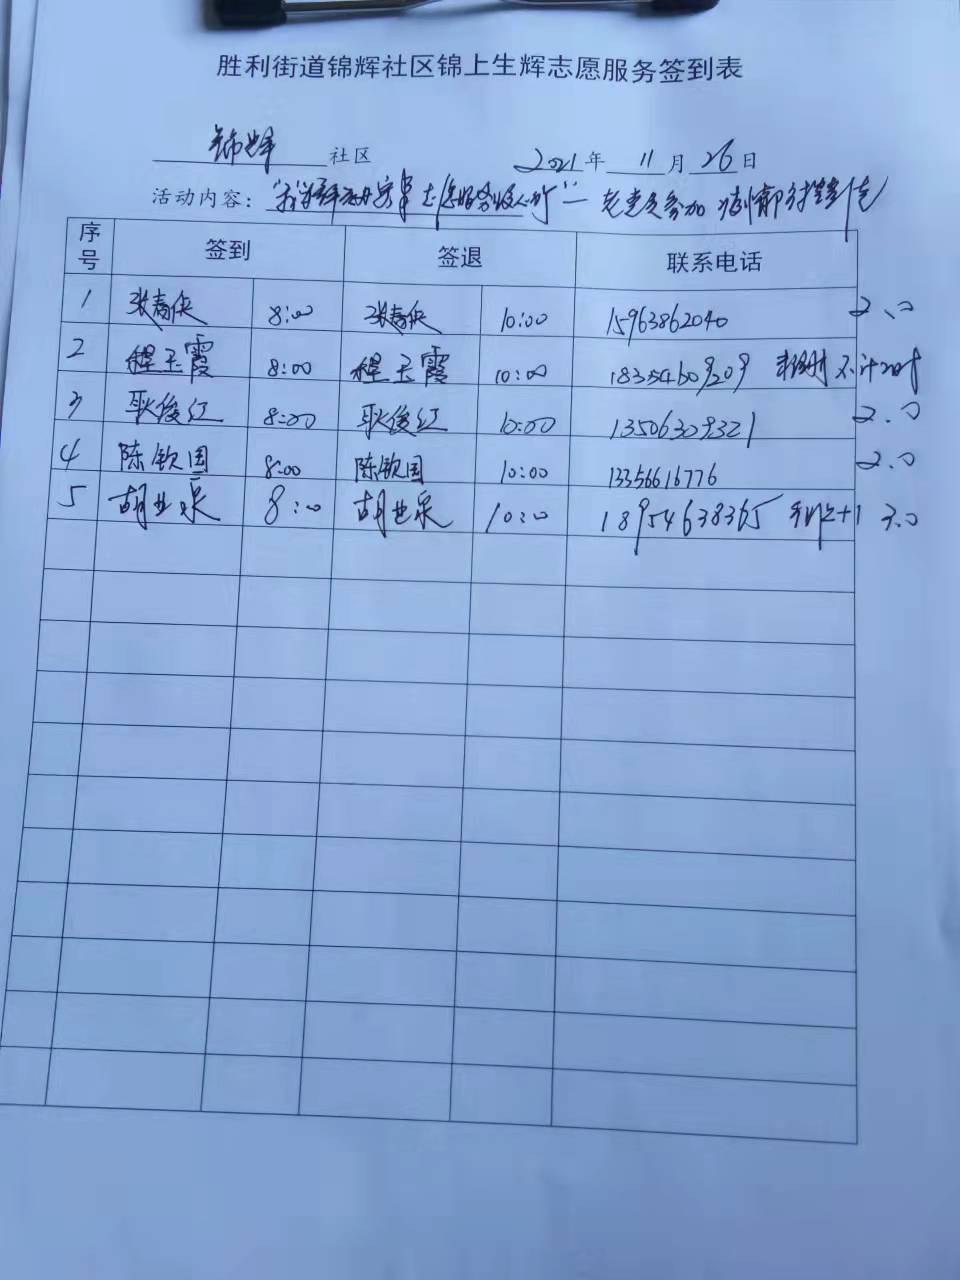 胜利街道锦辉社区锦上生辉志愿服务签到表
锦辉 社区 2021年 11月 26日
活动内容: 老党员参加
序号 签到 签退 联系电话
1 张春侠 8:00 张春侠 10:00 15963862040 2.0
2 程玉霞 8:00 程玉霞 10:00 18354609209 不计时
3 耿俊红 8:00 耿俊红 10:00 13506309321 2.0
4 陈钦国 8:00 陈钦国 10:00 13356616776 2.0
5 胡业泉 8:00 胡业泉 10:00 18954638365 +1 3.0